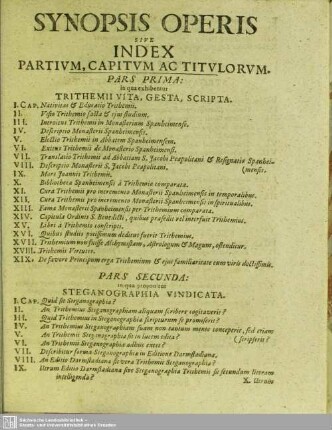 SYNOPSIS OPERIS
SIVE
INDEX
PARTIVM, CAPITVM AC TITVLORVM.
PARS PRIMA:
in qua exhibentur
TRITHEMII VITA, GESTA, SCRIPTA.
I. CAP. Nativitas & Educatio Trithemii.
II. Visio Trithemio facta & ejus studium.
III. Introitus Trithemii in Monasterium Spanheimense.
IV. Descriptio Monasterii Spanheimensis.
V. Electio Trithemii in Abbatem Spanheimensem.
VI. Exitus Trithemii de Monasterio Spanheimensi.
VII. Translatio Trithemii ad Abbatiam S. Jacobi Peapolitani & Resignatio Spanhei-
VIII. Descriptio Monasterii S. Jacobi Peapolitani. (mensis.
IX. Mors Joannis Trithemii.
X. Bibliotheca Spanheimensis à Trithemio comparata.
XI. Cura Trithemii pro incremento Monasterii Spanheimensis in temporalibus.
XII. Cura Trithemii pro incremento Monasterii Spanheimensis in spiritualibus.
XIII. Fama Monasterii Spanheimensis per Trithemium comparata.
XIV. Capitula Ordinis S. Benedicti, quibus præsedit vel interfuit Trithemius.
XV. Libri à Trithemio conscripti.
XVI. Quibus studiis potissimum deditus fuerit Trithemius.
XVII. Trithemium non fuisse Alchymistam, astrologum & Magum, ostenditur.
XVIII. Trithemii Virtutes.
XIX. De favore Principum erga Trithemium & ejus familiaritate cum viris doctissimis.
PARS SECUNDA:
in qua proponitur
STEGANOGRAPHIA VINDICATA.
I. CAP. Quid sit Steganographia?
II. An Trithemius Steganographiam aliquam scribere cogitaverit?
III. Quid Trithemius in Steganographia scripturum se promiserit?
IV. An Trithemius Steganographiam suam non tantum mente conceperit, sed etiam
V. An Trithemii Steganographia sit in lucem edita? (scripserit?
VI. An Trithemii Steganographia adhuc extet?
VII. Describitur forma Steganographiæ in Editione Darmstadiana.
VIII. An Editio Darmstadiana sit vera Trithemii Steganographia?
IX. Utrum Editio Darmstadiana sive Steganographia Trithemii sit secundum literam
intelligenda? X. Utrum